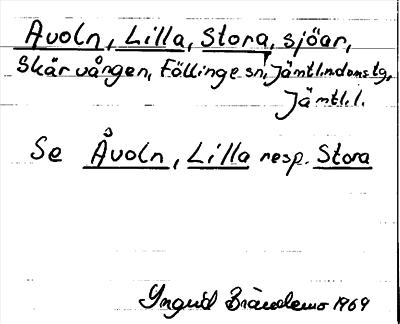 Avoln, Lilla, Stora, sjöar,
Skärvången, Föllinge sn, Jämtl.n.domstg,
Jämtl.l.
Se Åvoln, Lilla resp. Stora
Ingrid Brändemo 1969